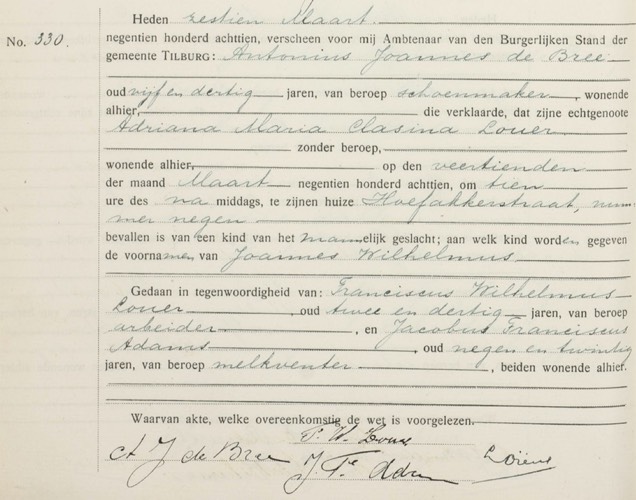 Heden zestien Maart
No. 330. negentien honderd achttien, verscheen voor mij Ambtenaar van den Burgerlijken Stand der
gemeente TILBURG: Antonius Joannes de Bree
oud vijf en dertig jaren, van beroep schoenmaker, wonende
alhier, die verklaarde, dat zijne echtgenoote
Adriana Maria Clasina Louer
zonder beroep,
wonende alhier, op den veertienden
der maand Maart negentien honderd achttien, om tien
ure des na middags, te zijnen huize Hoefakkerstraat, num-
mer negen
bevallen is van een kind van het mannelijk geslacht; aan welk kind worden gegeven
de voornamen van Joannes Wilhelmus
Gedaan in tegenwoordigheid van: Franciscus Wilhelmus
Louer, oud twee en dertig jaren, van beroep
arbeider, en Jacobus Franciscus
Adams, oud negen en twintig
jaren, van beroep melkventer, beiden wonende alhier.
Waarvan akte, welke overeenkomstig de wet is voorgelezen.
F. W. Louer
A J de Bree J Fc Adams